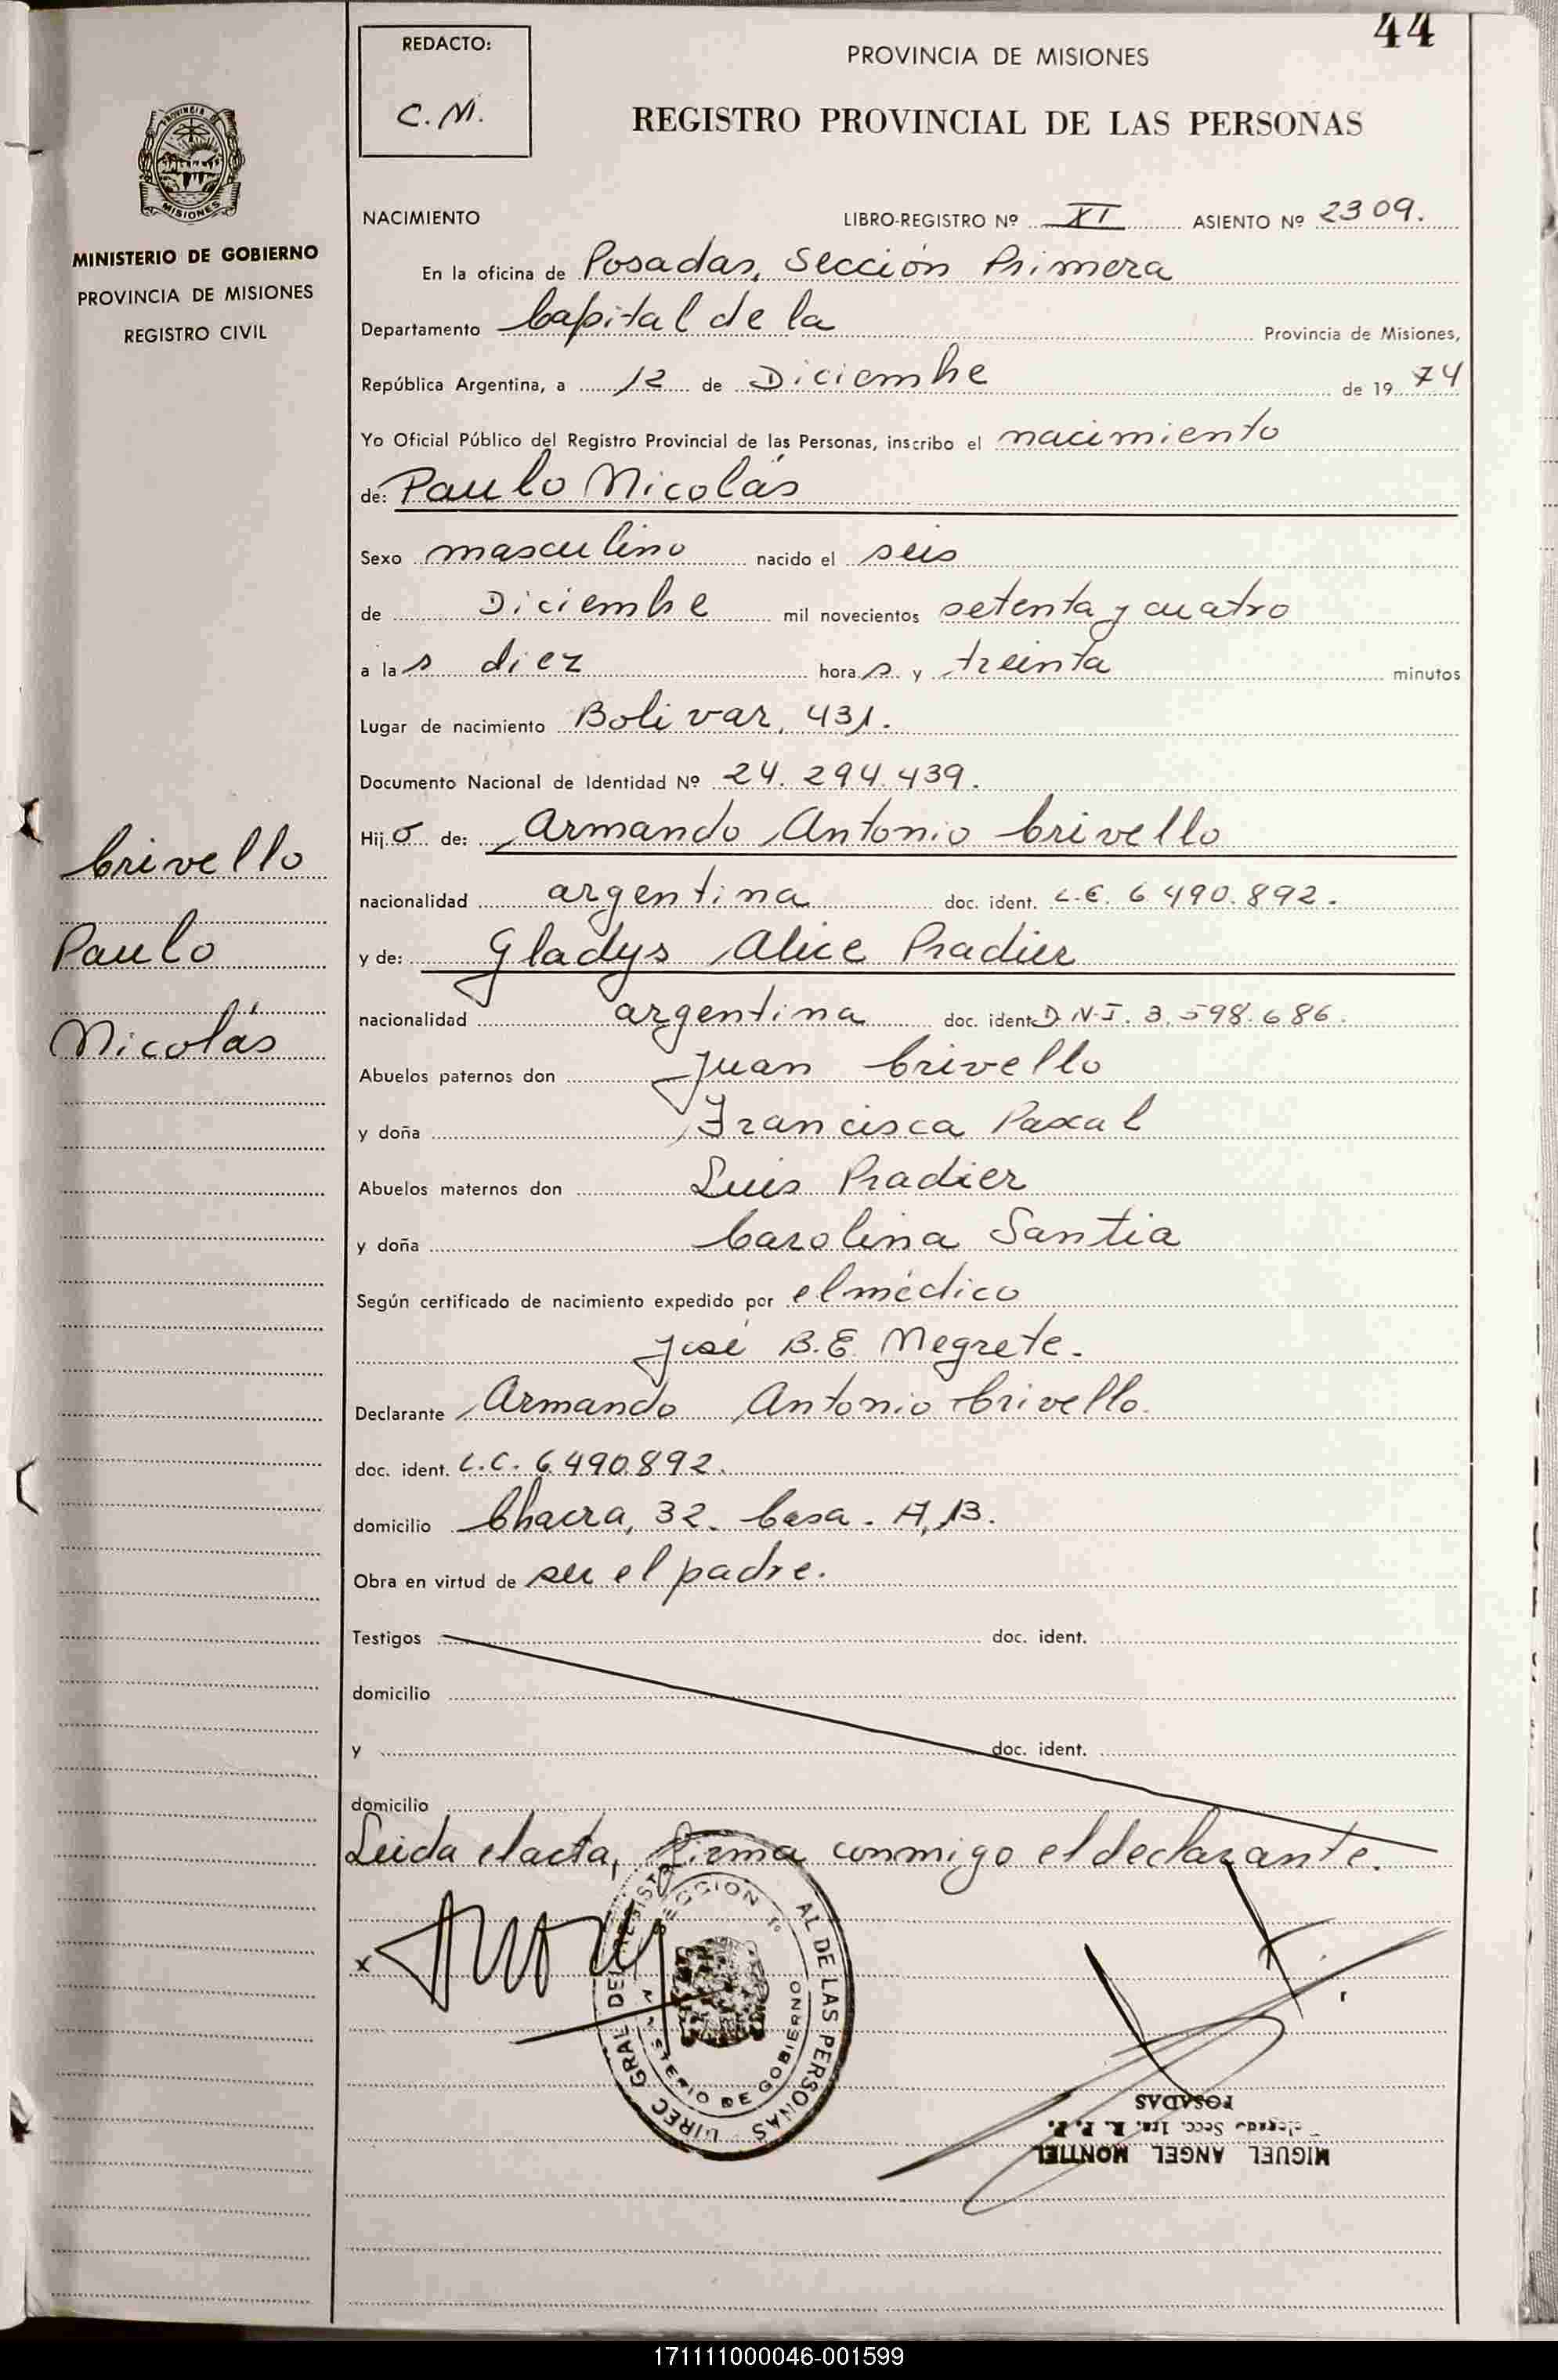 44
REDACTO:
C.M.
PROVINCIA DE MISIONES
REGISTRO PROVINCIAL DE LAS PERSONAS
PROVINCIA DE
MISIONES
MINISTERIO DE GOBIERNO
PROVINCIA DE MISIONES
REGISTRO CIVIL
Crivello
Paulo
Nicolás
NACIMIENTO LIBRO-REGISTRO Nº XI ASIENTO Nº 2309.
En la oficina de Posadas, Sección Primera
Departamento Capital de la Provincia de Misiones,
República Argentina, a 12 de Diciembre de 1974
Yo Oficial Público del Registro Provincial de las Personas, inscribo el nacimiento
de: Paulo Nicolás
Sexo masculino nacido el seis
de Diciembre mil novecientos setenta y cuatro
a las diez horas y treinta minutos
Lugar de nacimiento Bolivar, 431.
Documento Nacional de Identidad Nº 24.294.439.
Hijo de: Armando Antonio Crivello
nacionalidad argentina doc. ident. L.E. 6.490.892.
y de: Gladys Alice Pradier
nacionalidad argentina doc. ident. D.N.I. 3.598.686.
Abuelos paternos don Juan Crivello
y doña Francisca Paxal
Abuelos maternos don Luis Pradier
y doña Carolina Santia
Según certificado de nacimiento expedido por el médico
José B.E. Negrete.
Declarante Armando Antonio Crivello.
doc. ident. L.C. 6.490.892.
domicilio Chacra, 32. Casa. A, 13.
Obra en virtud de ser el padre.
Testigos doc. ident.
domicilio
y doc. ident.
domicilio
Leida el acta, firma conmigo el declarante.
x
DIREC GRAL DEL REGIST AL DE LAS PERSONAS
SECCION 1º
MINISTERIO DE GOBIERNO
MIGUEL ANGEL MONTIEL
Delegado Secc. 1ra. R. P. P.
POSADAS
171111000046-001599